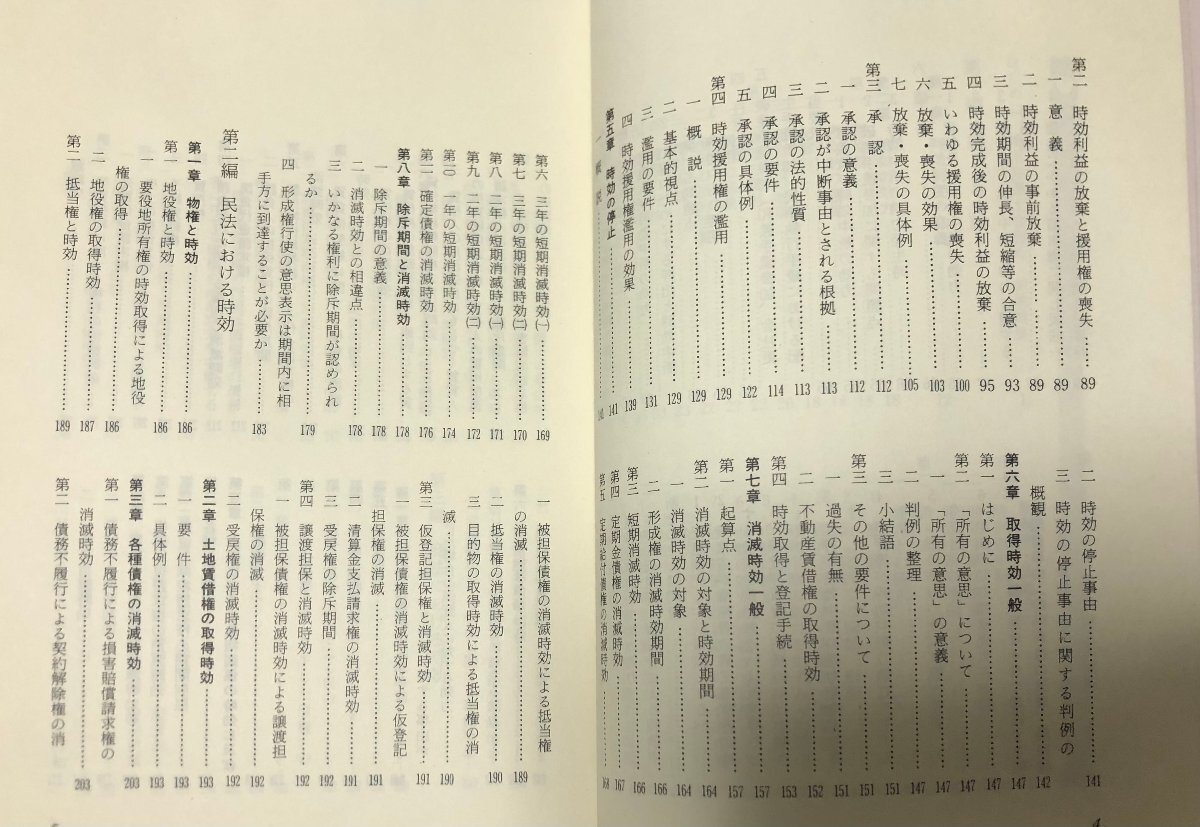 第二 時効利益の放棄と援用権の喪失……89
一 意義……89
二 時効利益の事前放棄……89
三 時効期間の伸長、短縮等の合意……93
四 時効完成後の時効利益の放棄……95
五 いわゆる援用権の喪失……100
六 放棄・喪失の効果……103
七 放棄・喪失の具体例……105
第三 承認……112
一 承認の意義……112
二 承認が中断事由とされる根拠……113
三 承認の法的性質……113
四 承認の要件……114
五 承認の具体例……122
第四 時効援用権の濫用……129
一 概説……129
二 基本的視点……129
三 濫用の要件……131
四 時効援用権濫用の効果……139
第五章 時効の停止……141
二 時効の停止事由……141
三 時効の停止事由に関する判例の
概観……142
第六章 取得時効一般……147
第一 はじめに……147
第二 「所有の意思」について……147
一 「所有の意思」の意義……147
二 判例の整理……147
三 小結語……151
第三 その他の要件について……151
一 過失の有無……151
二 不動産賃借権の取得時効……152
第四 時効取得と登記手続……153
第七章 消滅時効一般……157
第一 起算点……157
第二 消滅時効の対象と時効期間……164
一 消滅時効の対象……164
二 形成権の消滅時効期間……166
第三 短期消滅時効……166
第四 定期金債権の消滅時効……167
第五 定期給付債権の消滅時効……168
第六 三年の短期消滅時効㈠……169
第七 三年の短期消滅時効㈡……170
第八 二年の短期消滅時効㈠……171
第九 二年の短期消滅時効㈡……172
第一〇 一年の短期消滅時効……174
第一一 確定債権の消滅時効……176
第八章 除斥期間と消滅時効……178
一 除斥期間の意義……178
二 消滅時効との相違点……178
三 いかなる権利に除斥期間が認められ
るか……179
四 形成権行使の意思表示は期間内に相
手方に到達することが必要か……183
第二編 民法における時効
第一章 物権と時効……186
第一 地役権と時効……186
一 要役地所有権の時効取得による地役
権の取得……186
二 地役権の取得時効……187
第二 抵当権と時効……189
一 被担保債権の消滅時効による抵当権
の消滅……189
二 抵当権の消滅時効……190
三 目的物の取得時効による抵当権の消
滅……190
第三 仮登記担保権と消滅時効……191
一 被担保債権の消滅時効による仮登記
担保権の消滅……191
二 清算金支払請求権の消滅時効……191
三 受戻権の除斥期間……192
第四 譲渡担保と消滅時効……192
一 被担保債権の消滅時効による譲渡担
保権の消滅……192
二 受戻権の消滅時効……192
第二章 土地賃借権の取得時効……193
一 要件……193
二 具体例……193
第三章 各種債権の消滅時効……203
第一 債務不履行による損害賠償請求権の
消滅時効……203
第二 債務不履行による契約解除権の消
4